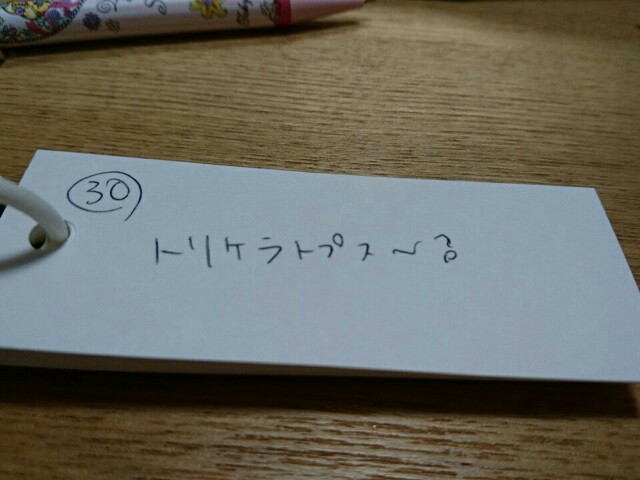 ㉚
トリケラトプス~る